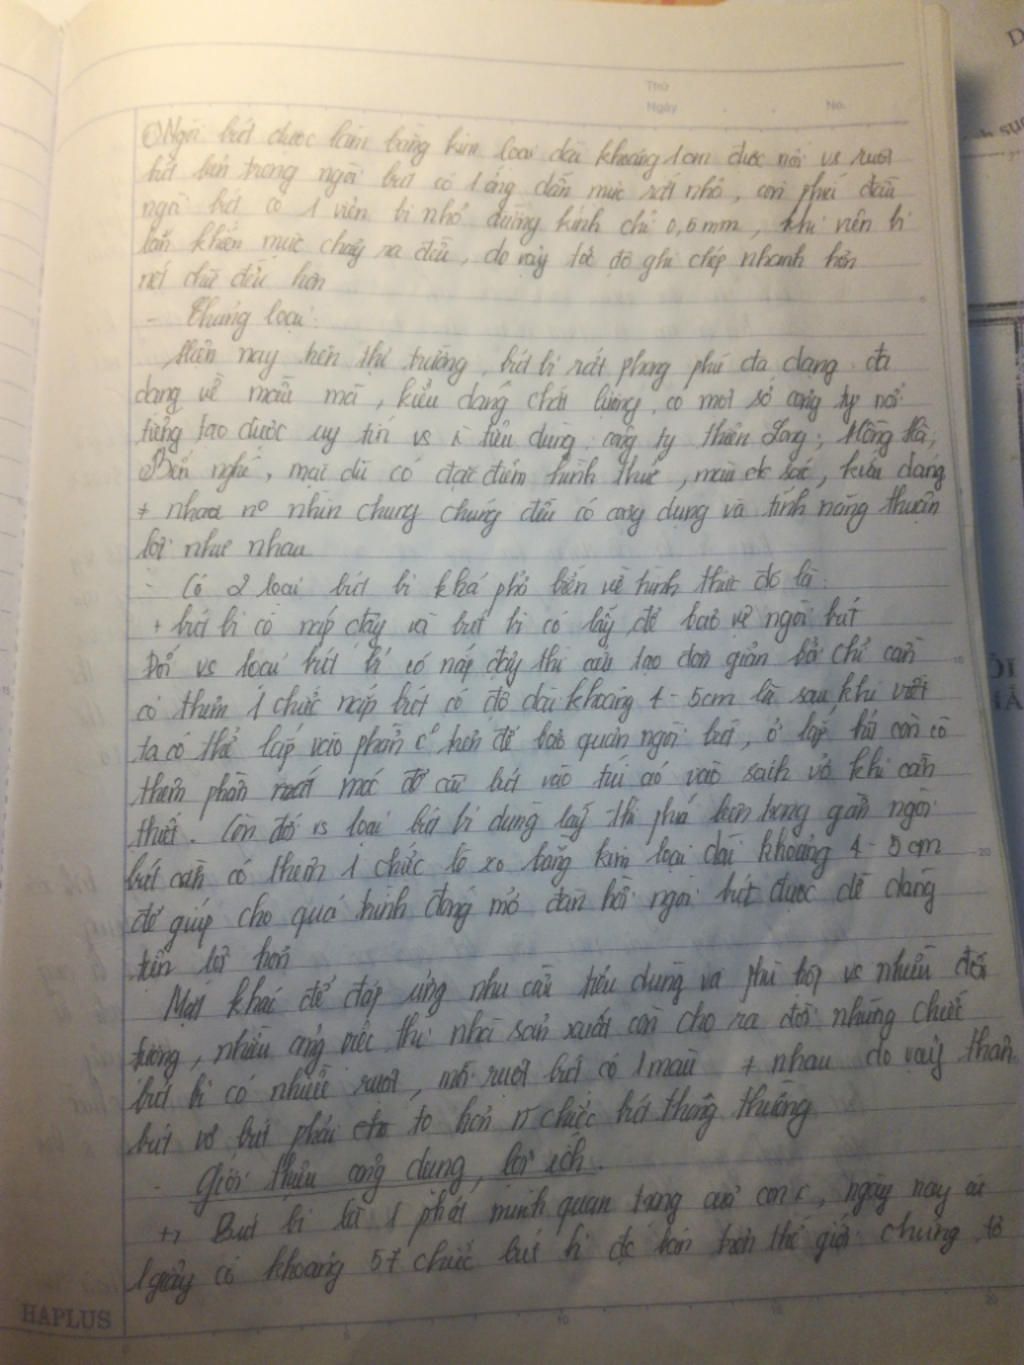 Thứ
Ngày . . No.
Ngòi bút được làm bằng kim loại dài khoảng 1cm được nối vs ruột
bút bên trong ngòi bút có 1 ống dẫn mực rất nhỏ, còn phía đầu
ngòi bút có 1 viên bi nhỏ đường kính chỉ 0,5mm, khi viên bi
lăn khiến mực chảy ra đều, do vậy tốc độ ghi chép nhanh hơn
nét chữ đều hơn
- Chủng loại:
Hiện nay trên thị trường, bút bi rất phong phú đa dạng đa
dạng về mẫu mã, kiểu dáng chất lượng, có một số công ty nổi
tiếng tạo được uy tín vs tiêu dùng, công ty Thiên Long, Hồng Hà,
Bến nghé, mặc dù có đặc điểm hình thức, màu sắc, kiểu dáng
≠ nhau nhìn chung chúng đều có công dụng và tính năng thuận
lợi như nhau
- Có 2 loại bút bi khá phổ biến về hình thức đó là:
+ bút bi có nắp đậy và bút bi có lẫy để bảo vệ ngòi bút
Đối vs loại bút bi có nắp đậy thì cấu tạo đơn giản bởi chỉ cần
có thêm 1 chiếc nắp bút có độ dài khoảng 4-5cm là sau khi viết
ta có thể lắp vào phần trên để bảo quản ngòi bút, ở lắp bút còn có
thêm phần móc để cài bút vào túi áo vào sách vở khi cần
thiết. Còn đối vs loại bút bi dùng lẫy thì phía bên trong gần ngòi
bút cần có thêm 1 chiếc lò xo bằng kim loại dài khoảng 4-5cm
để giúp cho quá trình đóng mở đàn hồi ngòi bút được dễ dàng
tiện lợi hơn
Mặt khác để đáp ứng nhu cầu tiêu dùng và phù hợp vs nhiều đối
tượng, nhiều công việc thì nhà sản xuất còn cho ra đời những chiếc
bút bi có nhiều ruột, mỗi ruột bút có 1 màu ≠ nhau do vậy thân
bút vỏ bút phải to hơn chiếc bút thông thường
- Giới thiệu công dụng, lợi ích.
+, Bút bi là 1 phát minh quan trọng của con, ngày nay cứ
1 giây có khoảng 57 chiếc bút bi đc bán trên thế giới chứng tỏ
HAPLUS
5
10
15
20